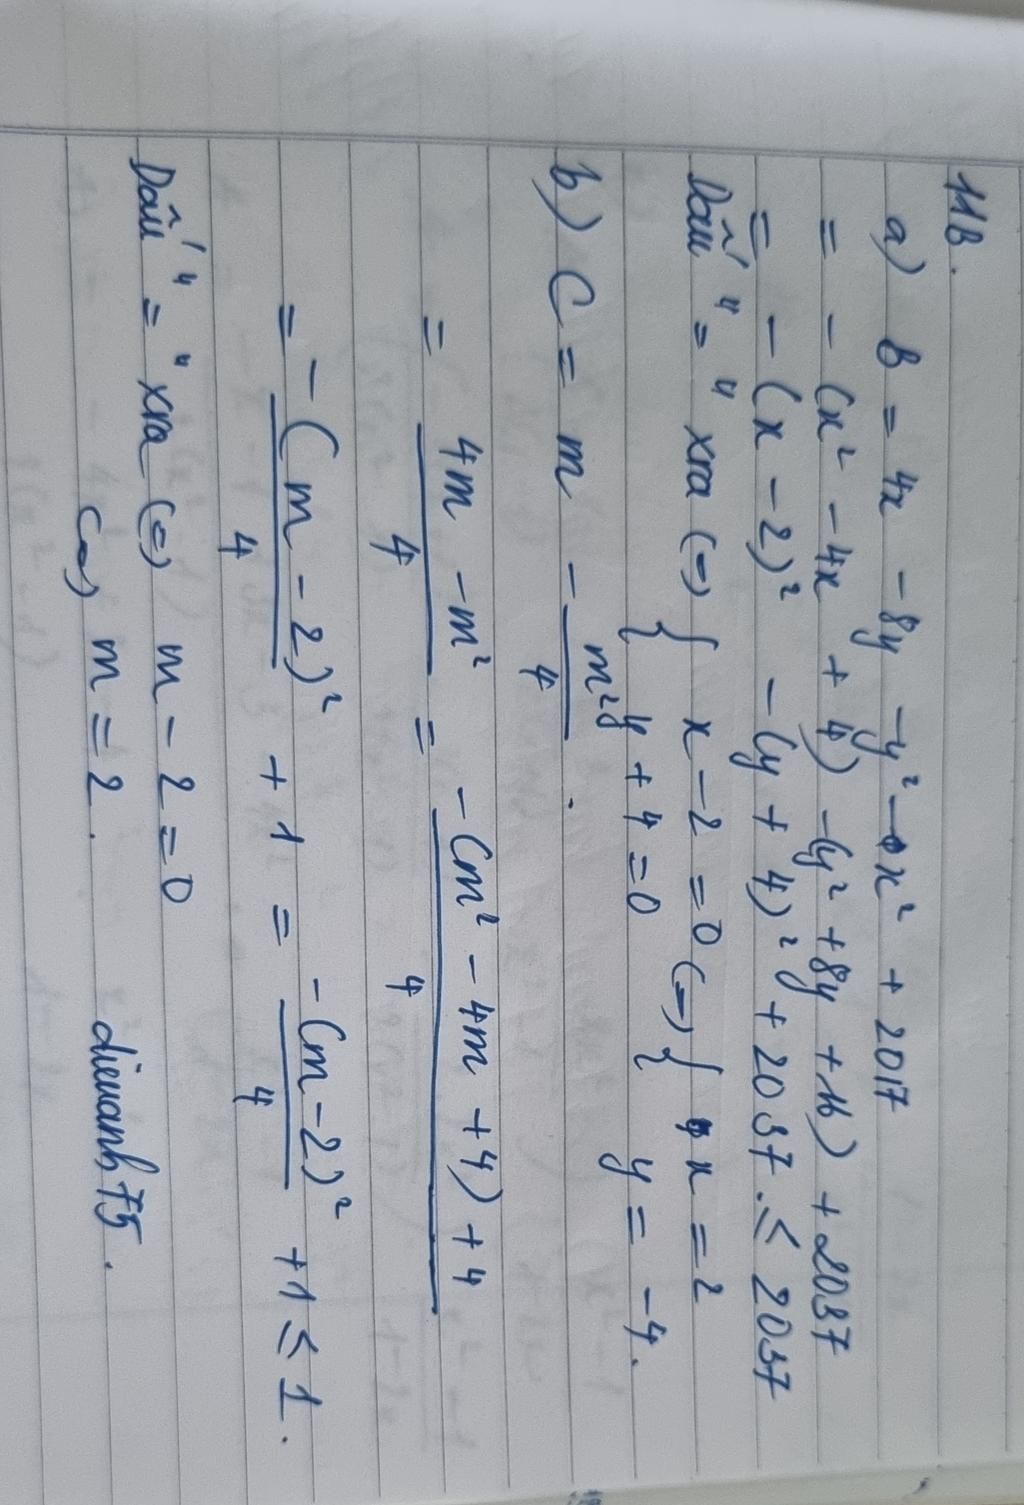 11B.
a) B = 4x - 8y - y² - x² + 2017
= - (x² - 4x + 4) - (y² + 8y + 16) + 2037
= - (x - 2)² - (y + 4)² + 2037 ≤ 2037
Dấu " = " xra (=) { x - 2 = 0 (=) { x = 2
{ y + 4 = 0 { y = -4.
b) C = m - m²/4.
= (4m - m²)/4 = (-(m² - 4m + 4) + 4)/4
= -(m - 2)²/4 + 1 = -(m - 2)²/4 + 1 ≤ 1.
Dấu " = " xra (=) m - 2 = 0
(=) m = 2. dieuanh75.